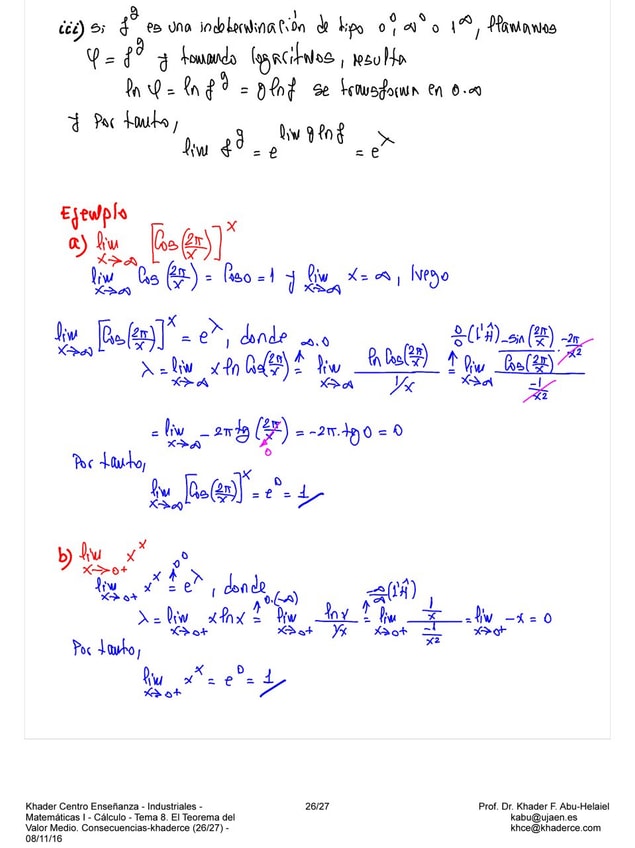 iii) Si f^g es una indeterminación de tipo 0^0, ∞^0 o 1^∞, llamamos
φ = f^g y tomando logaritmos, resulta
ln φ = ln f^g = g ln f se transforma en 0·∞
y Por tanto,
lim f^g = e^{lim g ln f} = e^λ
Ejemplo
a) lim_{x→∞} [Cos(2π/x)]^x
lim_{x→∞} Cos(2π/x) = Cos 0 = 1 y lim_{x→∞} x = ∞, luego
lim_{x→∞} [Cos(2π/x)]^x = e^λ, donde
λ = lim_{x→∞} x ln Cos(2π/x) =↑^{∞·0} lim_{x→∞} (ln Cos(2π/x))/(1/x) =↑^{0/0 (l'Ĥ)} lim_{x→∞} ((-sin(2π/x)·(-2π/x²))/(Cos(2π/x)))/(-1/x²)
= lim_{x→∞} -2π tg(2π/x) = -2π·tg 0 = 0
0
Por tanto,
lim_{x→∞} [Cos(2π/x)]^x = e^0 = 1
b) lim_{x→0+} x^x
lim_{x→0+} x^x =↑^{0^0} e^λ, donde
λ = lim_{x→0+} x ln x =↑^{0·(-∞)} lim_{x→0+} (ln x)/(1/x) =↑^{-∞/∞ (l'Ĥ)} lim_{x→0+} (1/x)/(-1/x²) = lim_{x→0+} -x = 0
Por tanto,
lim_{x→0+} x^x = e^0 = 1
Khader Centro Enseñanza - Industriales -
Matemáticas I - Cálculo - Tema 8. El Teorema del
Valor Medio. Consecuencias-khaderce (26/27) -
08/11/16
26/27
Prof. Dr. Khader F. Abu-Helaiel
kabu@ujaen.es
khce@khaderce.com